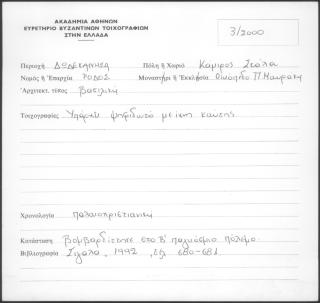 ΑΚΑΔΗΜΙΑ ΑΘΗΝΩΝ
ΕΥΡΕΤΗΡΙΟ ΒΥΖΑΝΤΙΝΩΝ ΤΟΙΧΟΓΡΑΦΙΩΝ
ΣΤΗΝ ΕΛΛΑΔΑ
3/2000
Περιοχή ΔΩΔΕΚΑΝΗΣΑ Πόλη ή Χωριό Κάμιρος Σκάλα
Νομός ή Επαρχία ΡΟΔΟΣ Μοναστήρι ή Εκκλησία Οικόπεδο Π. Μαυράκη
Αρχιτεκτ. τύπος Βασιλική
Τοιχογραφίες Υπάρχει ψηφιδωτό με ίχνη καύσης
Χρονολογία Παλαιοχριστιανική
Κατάσταση Βομβαρδίστηκε στο Β' παγκόσμιο πόλεμο
Βιβλιογραφία 1992, σελ. 680-681